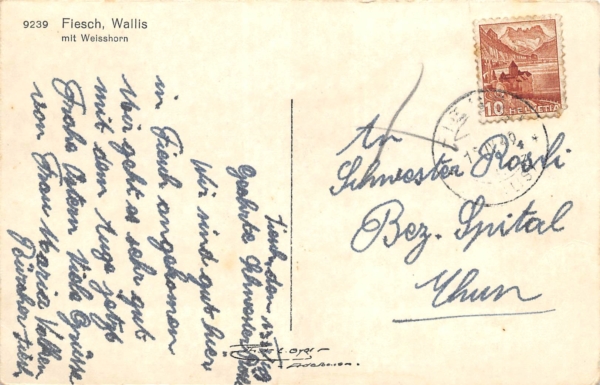 9239 Fiesch, Wallis
mit Weisshorn
Fiesch den
Geehrte Schwester
Wir sind gut hier
in Fiesch angekomen
Mir geht es sehr gut
mit dem Auge jetzt
Frohe Ostern Viele Grüsse
von Frau Maria Volken
Fiesch
10 HELVETIA
An
Schwester Rösli
Bez. Spital
Thun